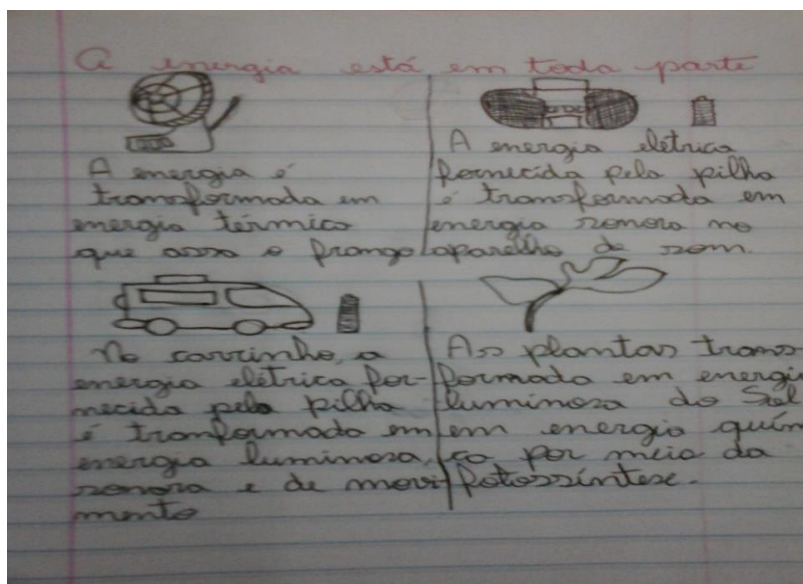 A energia está em toda parte
A energia é
transformada em
energia térmica
que assa o frango
A energia elétrica
fornecida pela pilha
é transformada em
energia sonora no
aparelho de som.
No carrinho, a
energia elétrica for-
necida pela pilha
é tranformada em
energia luminosa,
sonora e de movi
mento
As plantas trans-
formada em energi
luminosa do Sol
em energia quím
ca por meio da
fotossíntese.